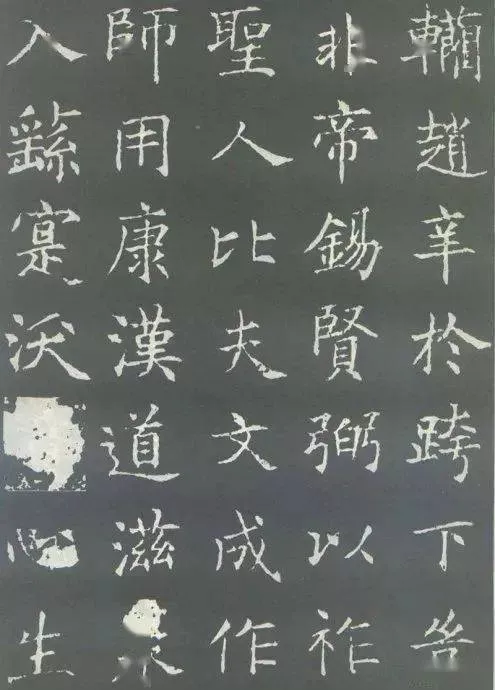 轥趙辛於跨下
非帝錫賢弼以祚
聖人比夫文成作
師用康漢道滋
入繇寔沃心生